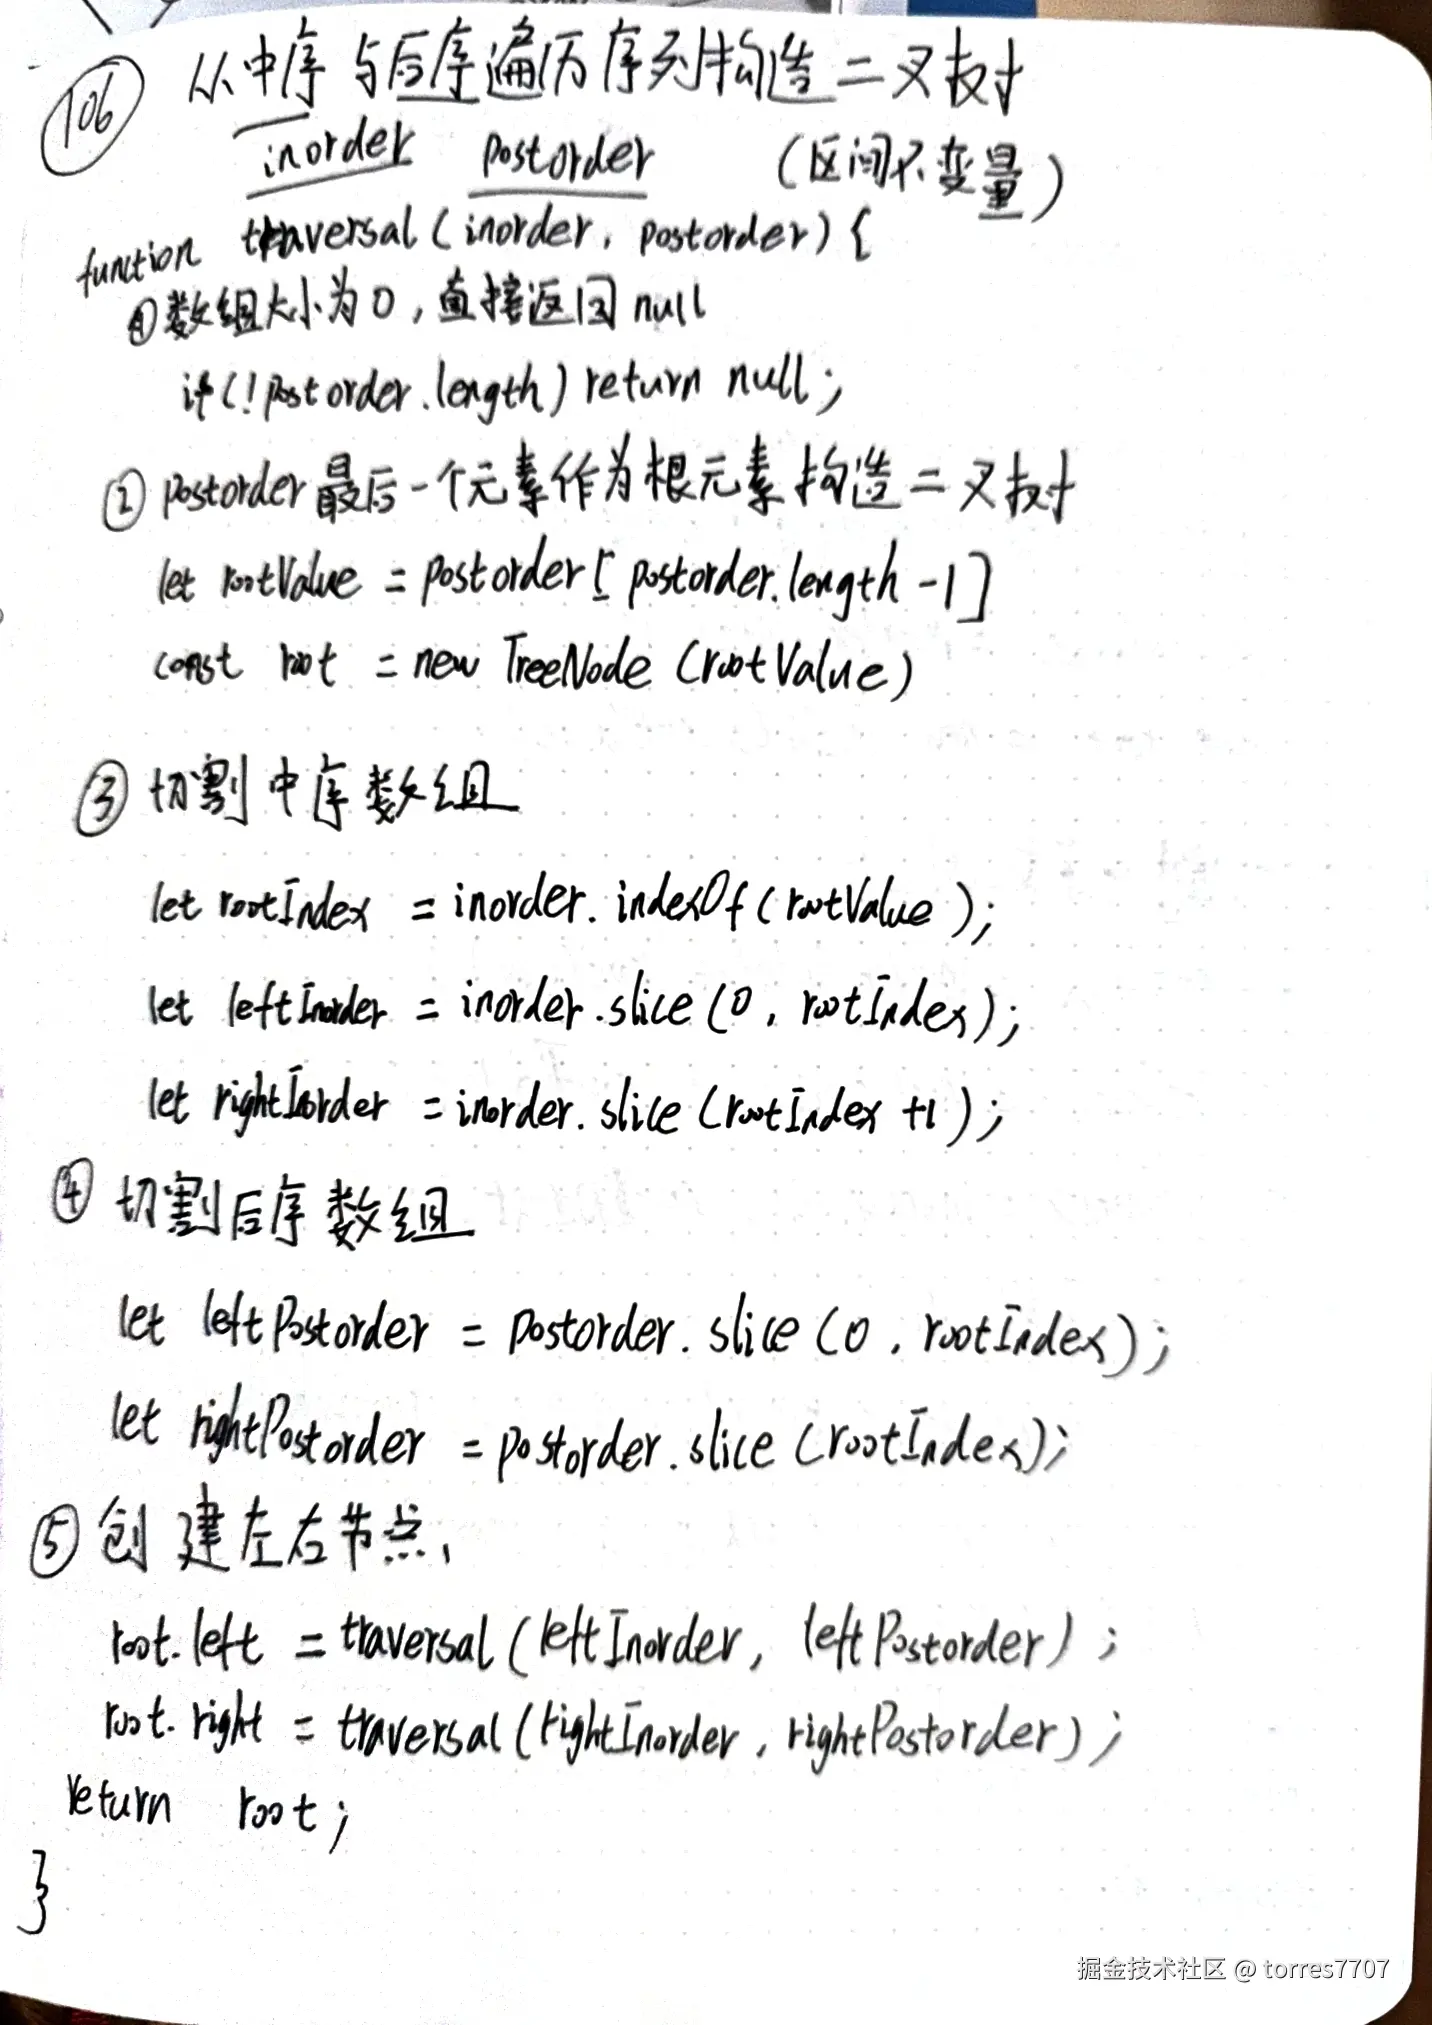 106 从中序与后序遍历序列构造二叉树
inorder postorder (区间不变量)
function traversal(inorder, postorder){
①数组大小为0,直接返回null
if(!postorder.length)return null;
②postorder最后一个元素作为根元素构造二叉树
let rootValue = postorder[postorder.length-1]
const root = new TreeNode(rootValue)
③切割中序数组
let rootIndex = inorder.indexOf(rootValue);
let leftInorder = inorder.slice(0, rootIndex);
let rightInorder = inorder.slice(rootIndex+1);
④切割后序数组
let leftPostorder = postorder.slice(0, rootIndex);
let rightPostorder = postorder.slice(rootIndex);
⑤创建左右节点,
root.left = traversal(leftInorder, leftPostorder);
root.right = traversal(rightInorder, rightPostorder);
return root;
}
掘金技术社区 @ torres7707